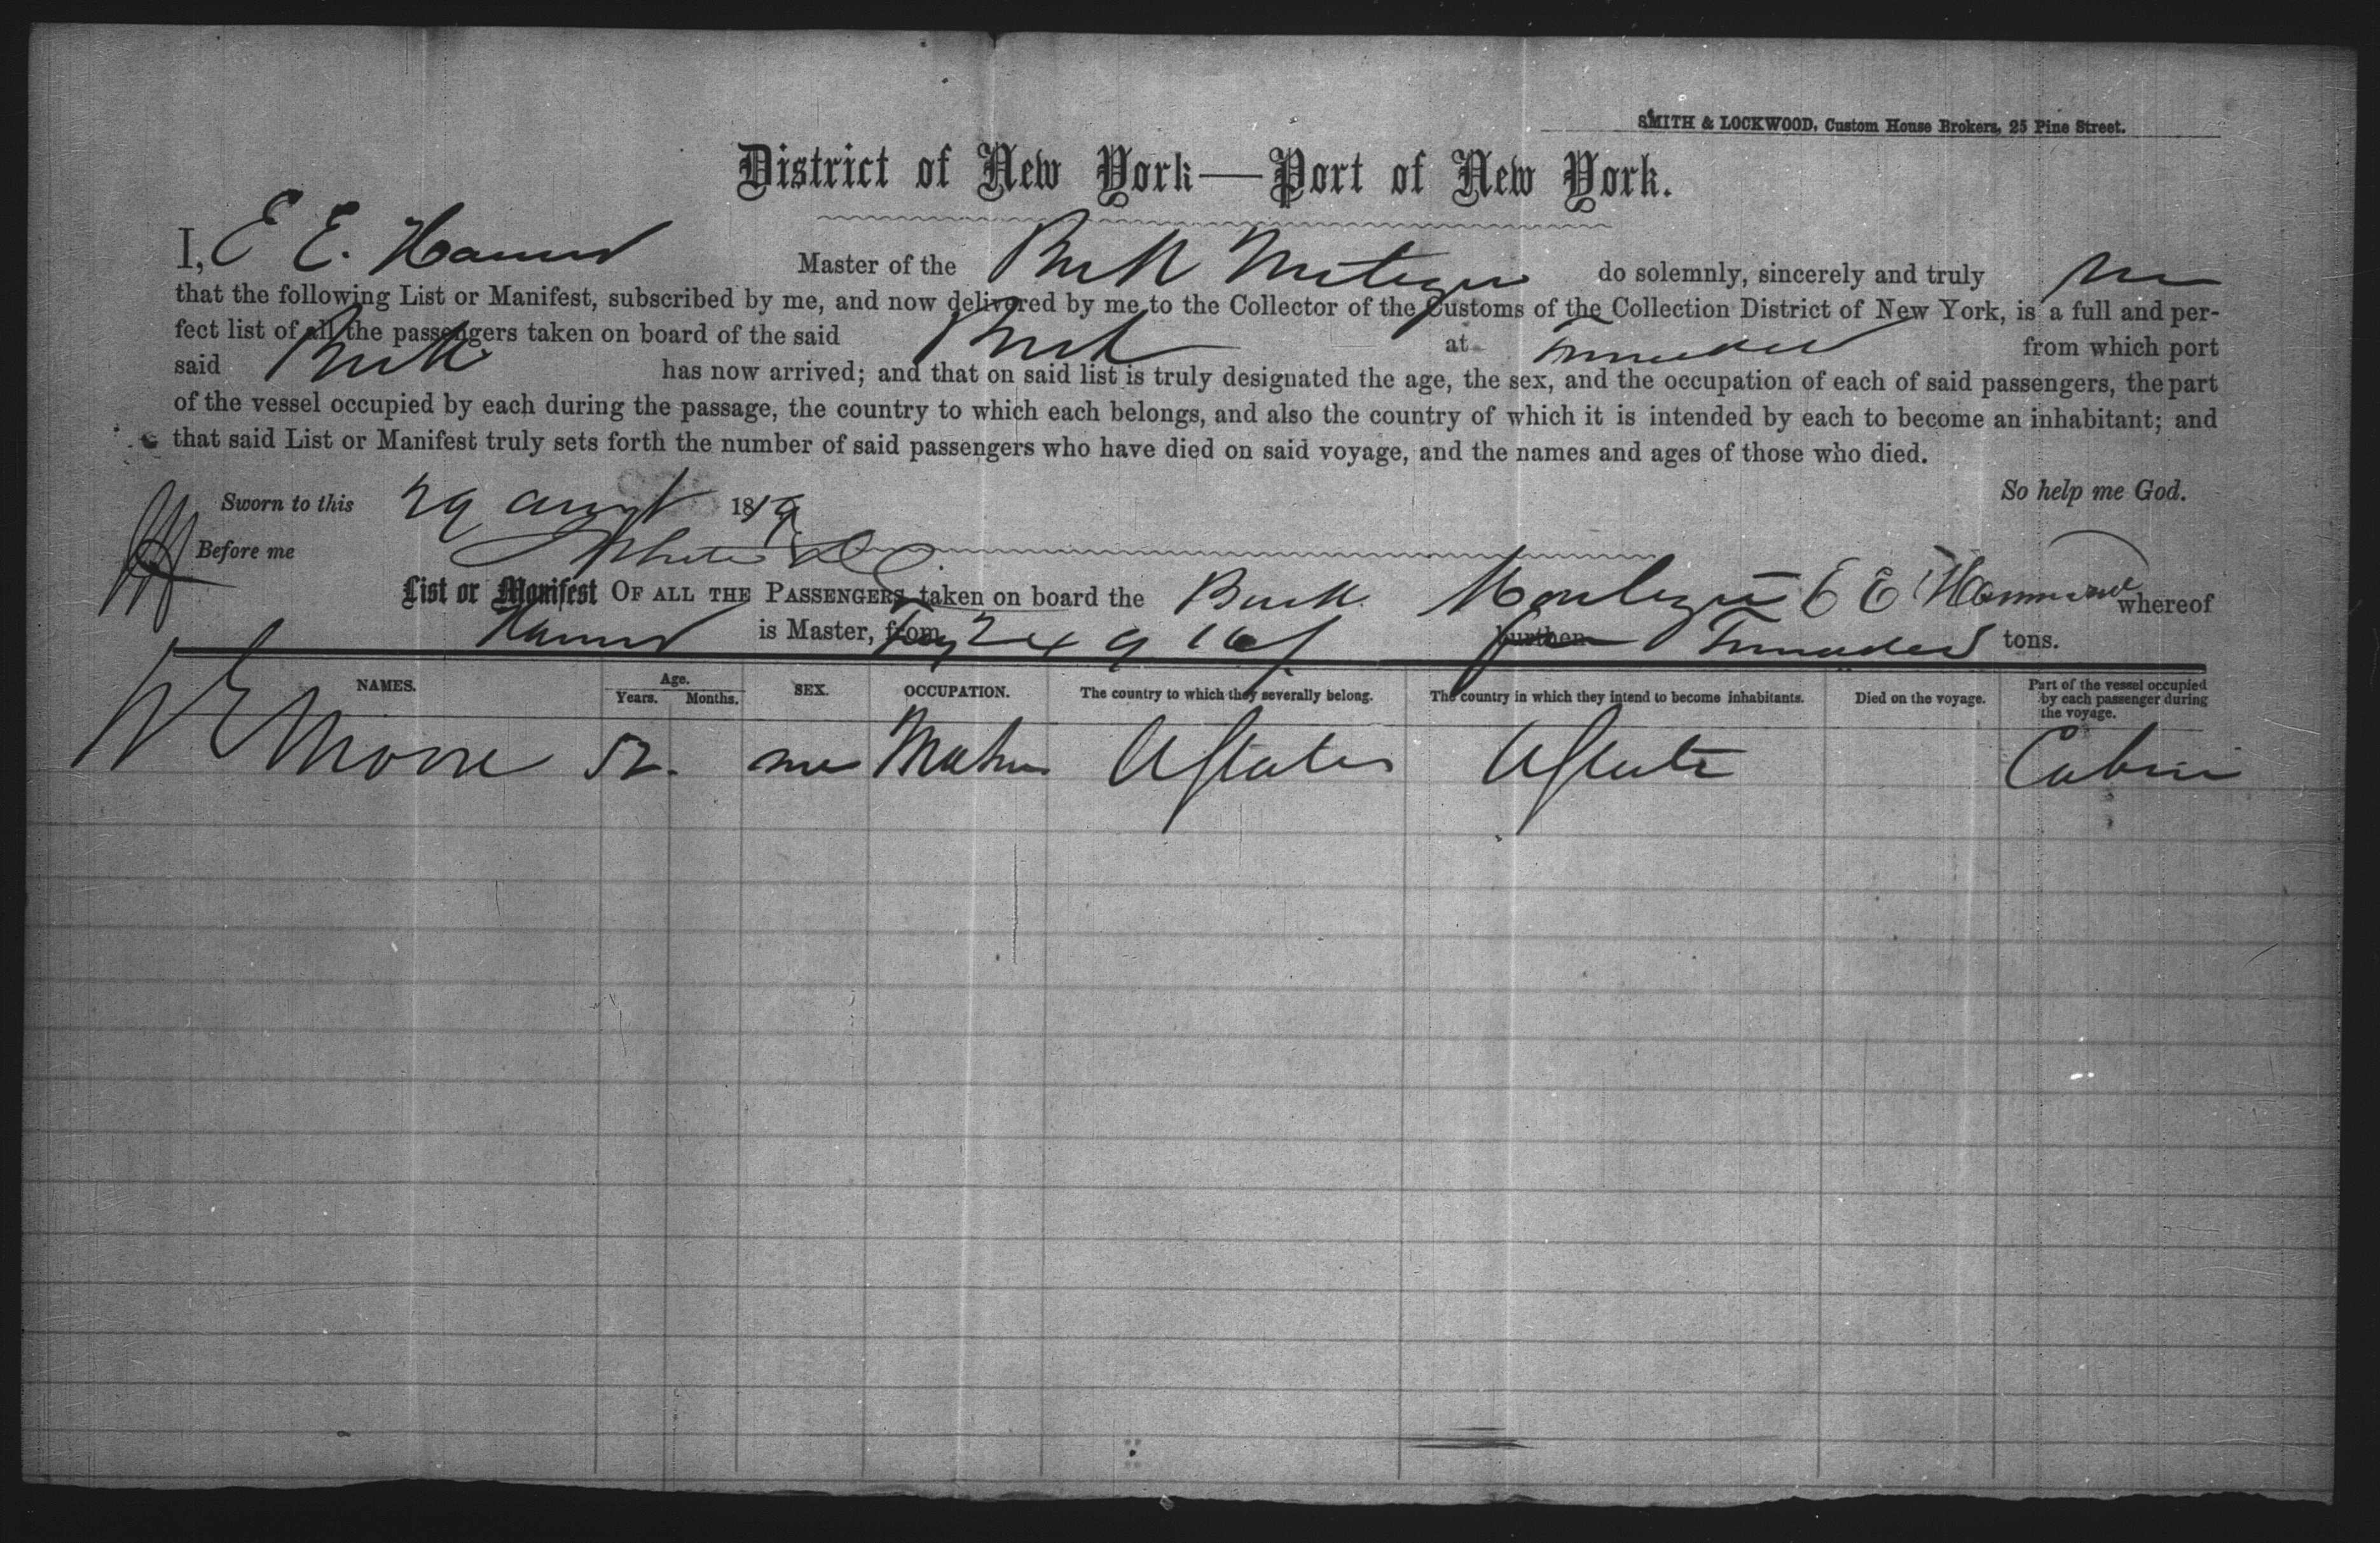 SMITH & LOCKWOOD, Custom House Brokers, 25 Pine Street.
District of New York—Port of New York.
I, E E. Master of the do solemnly, sincerely and truly
that the following List or Manifest, subscribed by me, and now delivered by me to the Collector of the Customs of the Collection District of New York, is a full and per-
fect list of all the passengers taken on board of the said at from which port
said has now arrived; and that on said list is truly designated the age, the sex, and the occupation of each of said passengers, the part
of the vessel occupied by each during the passage, the country to which each belongs, and also the country of which it is intended by each to become an inhabitant; and
that said List or Manifest truly sets forth the number of said passengers who have died on said voyage, and the names and ages of those who died.
So help me God.
Sworn to this 29 1879
Before me
List or Manifest OF ALL THE PASSENGERS taken on board the E E Hammond whereof
is Master, from burthen tons.
NAMES. Age. Years. Months. SEX. OCCUPATION. The country to which they severally belong. The country in which they intend to become inhabitants. Died on the voyage. Part of the vessel occupied by each passenger during the voyage.
W E Morse 52. UStates UState Cabin